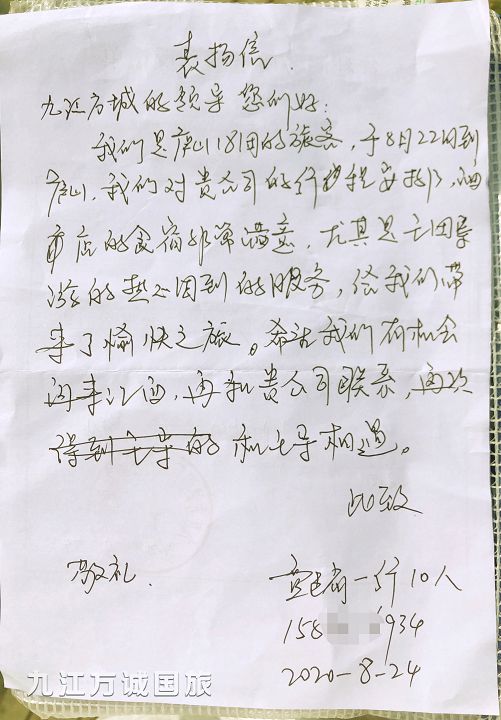 表扬信
九江方城的领导 您们好:
我们是庐山181团的旅客,于8月22日到
庐山,我们对贵公司的行程安排,酒
店的食宿非常满意,尤其是王团导
游的热心周到的服务,给我们带
来了愉快之旅。希望我们有机会
再来江西,再和贵公司联系,再次
得到王导的 和王导相遇。
此致
敬礼.
一行10人
158 1934
2020-8-24
九江万诚国旅